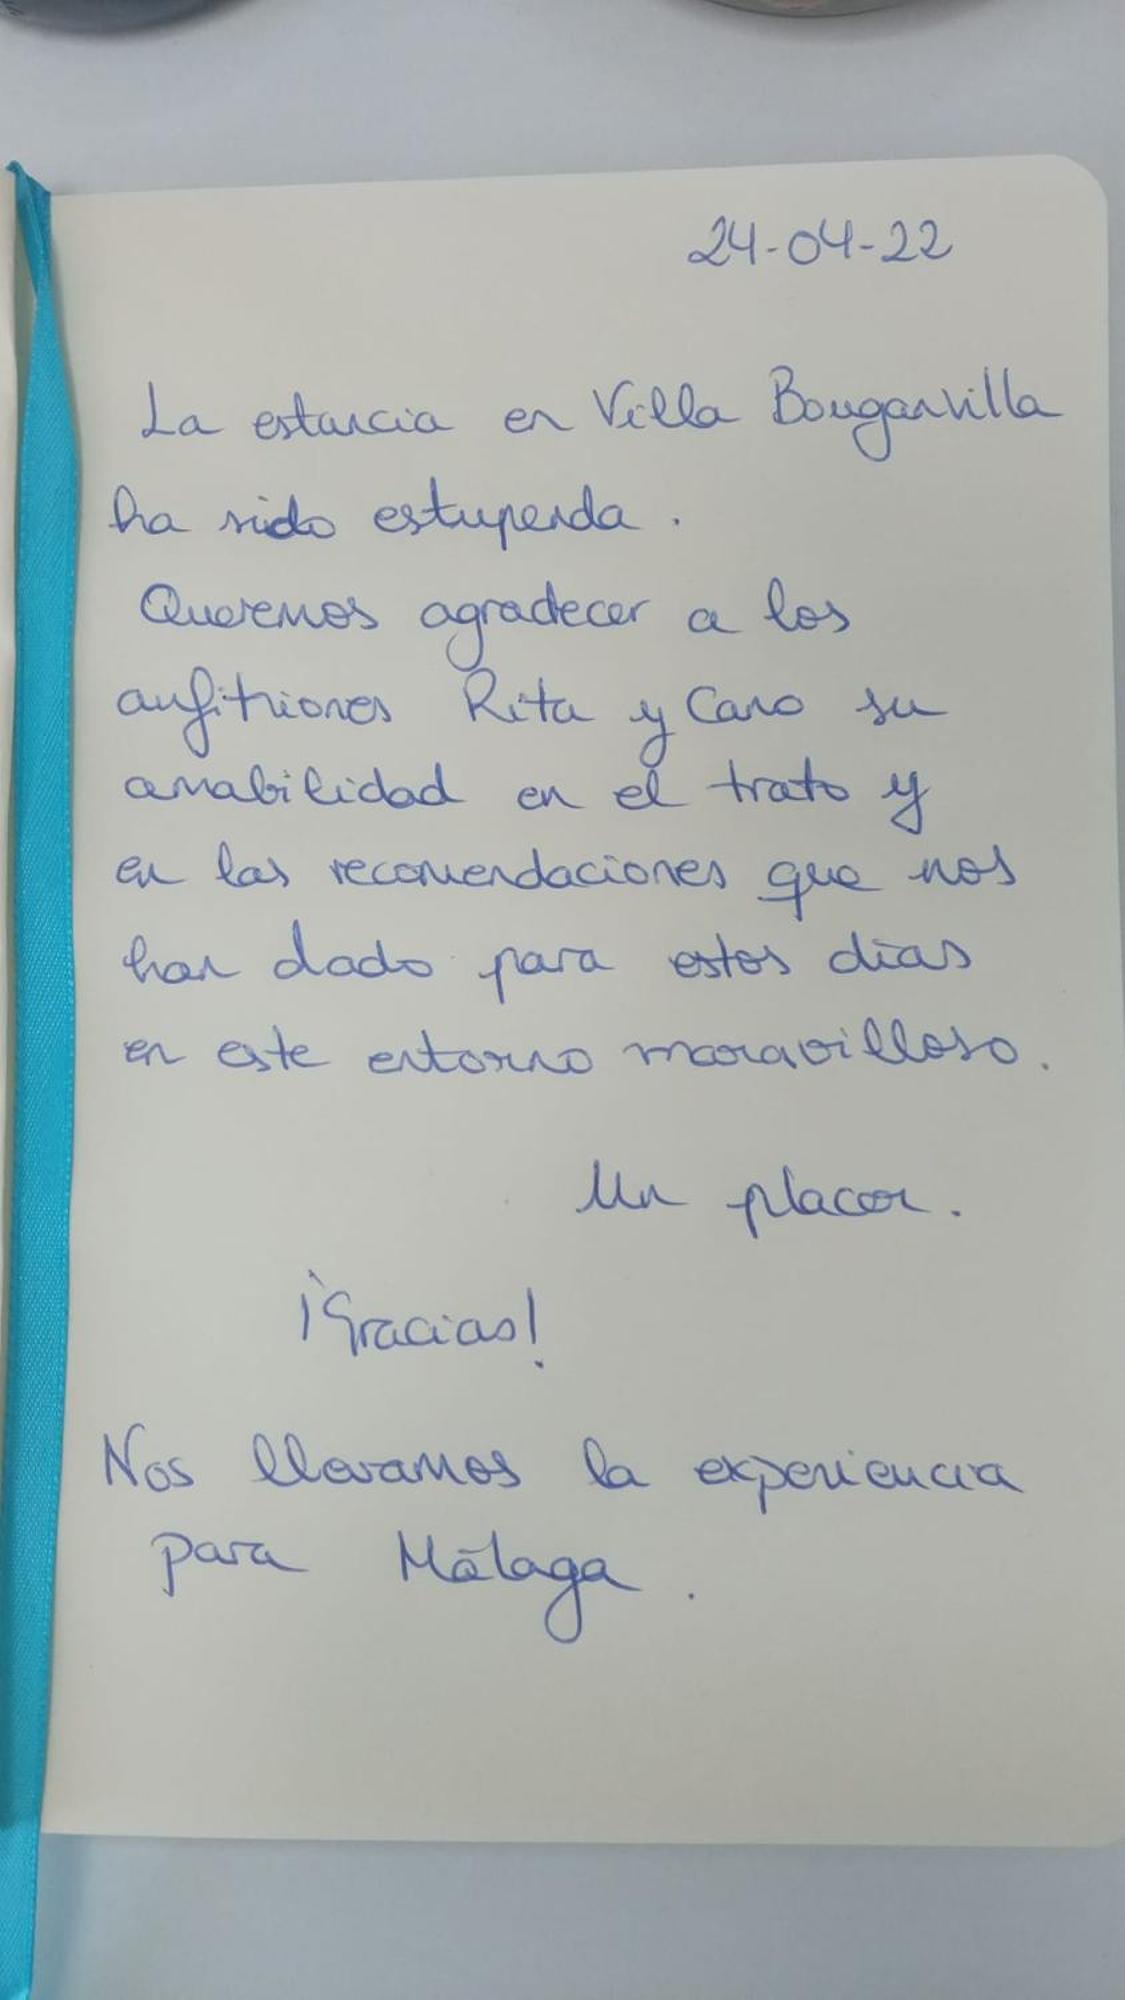 24-04-22
La estancia en Villa Bouganvilla
ha sido estupenda.
Queremos agradecer a los
anfitriones Rita y Caro su
amabilidad en el trato y
en las recomendaciones que nos
han dado para estos días
en este entorno maravilloso.
Un placer.
¡Gracias!
Nos llevamos la experiencia
para Málaga.